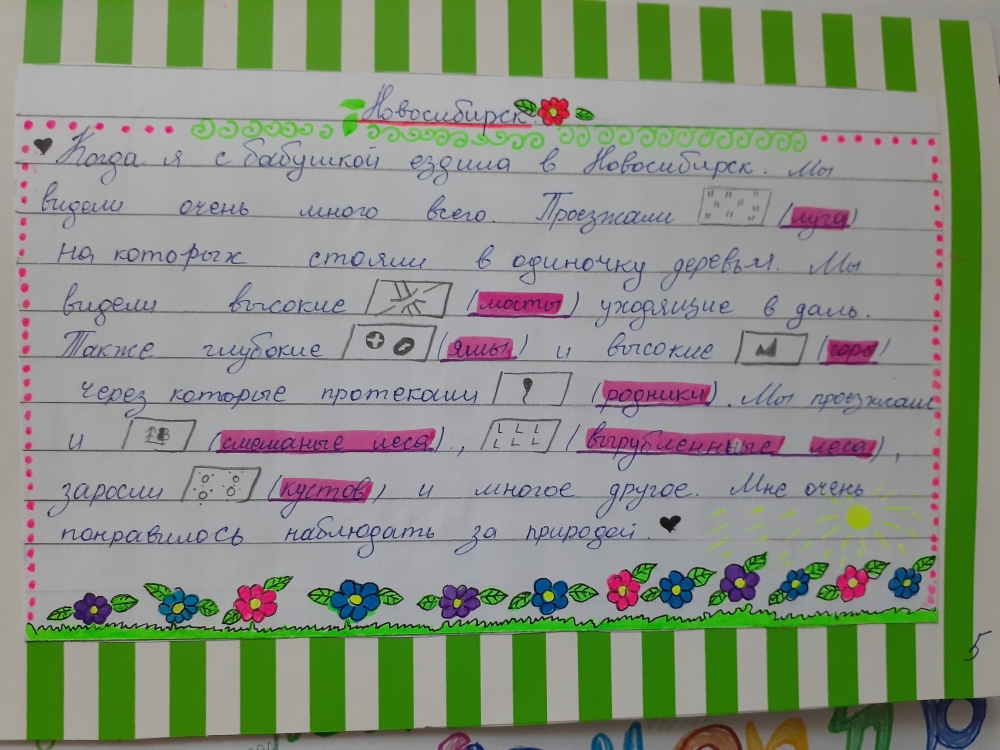 Новосибирск.
Когда я с бабушкой ездила в Новосибирск. Мы
видели очень много всего. Проезжали (луга)
на которых стояли в одиночку деревья. Мы
видели высокие (мосты) уходящие в даль.
Также глубокие (ямы) и высокие (горы)
через которые протекали (родники). Мы проезжали
и (смешаные леса), (вырубленнные леса),
заросли (кустов) и многое другое. Мне очень
понравилось наблюдать за природой.
5